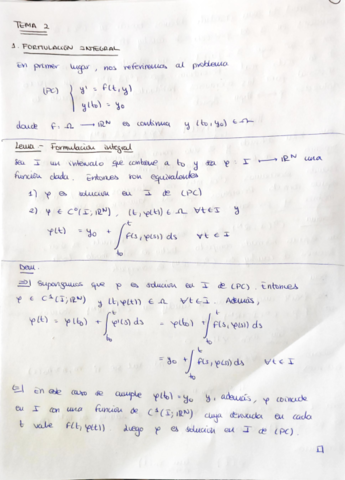 TEMA 2
1. FORMULACIÓN INTEGRAL
En primer lugar, nos referiremos al problema
(PC) { y' = f(t,y)
y(t₀) = y₀
donde f: Ω → ℝᴺ es continua y (t₀,y₀) ∈ Ω
Lema - Formulación integral
Sea I un intervalo que contiene a t₀ y sea φ: I → ℝᴺ una
función dada. Entonces son equivalentes
1) φ es solución en I de (PC)
2) φ ∈ C⁰(I;ℝᴺ), (t,φ(t)) ∈ Ω ∀t∈I y
φ(t) = y₀ + ∫ₜ₀ᵗ f(s,φ(s)) ds ∀t∈I
Dem.
⇒) Supongamos que φ es solución en I de (PC). Entonces
φ ∈ C¹(I;ℝᴺ) y (t,φ(t)) ∈ Ω ∀t∈I. Además,
φ(t) = φ(t₀) + ∫ₜ₀ᵗ φ'(s) ds = φ(t₀) + ∫ₜ₀ᵗ f(s,φ(s)) ds
= y₀ + ∫ₜ₀ᵗ f(s,φ(s)) ds ∀t∈I
⇐) En este caso se cumple φ(t₀) = y₀ y, además, φ coincide
en I con una función de C¹(I;ℝᴺ) cuya derivada en cada
t vale f(t,φ(t)) luego φ es solución en I de (PC).